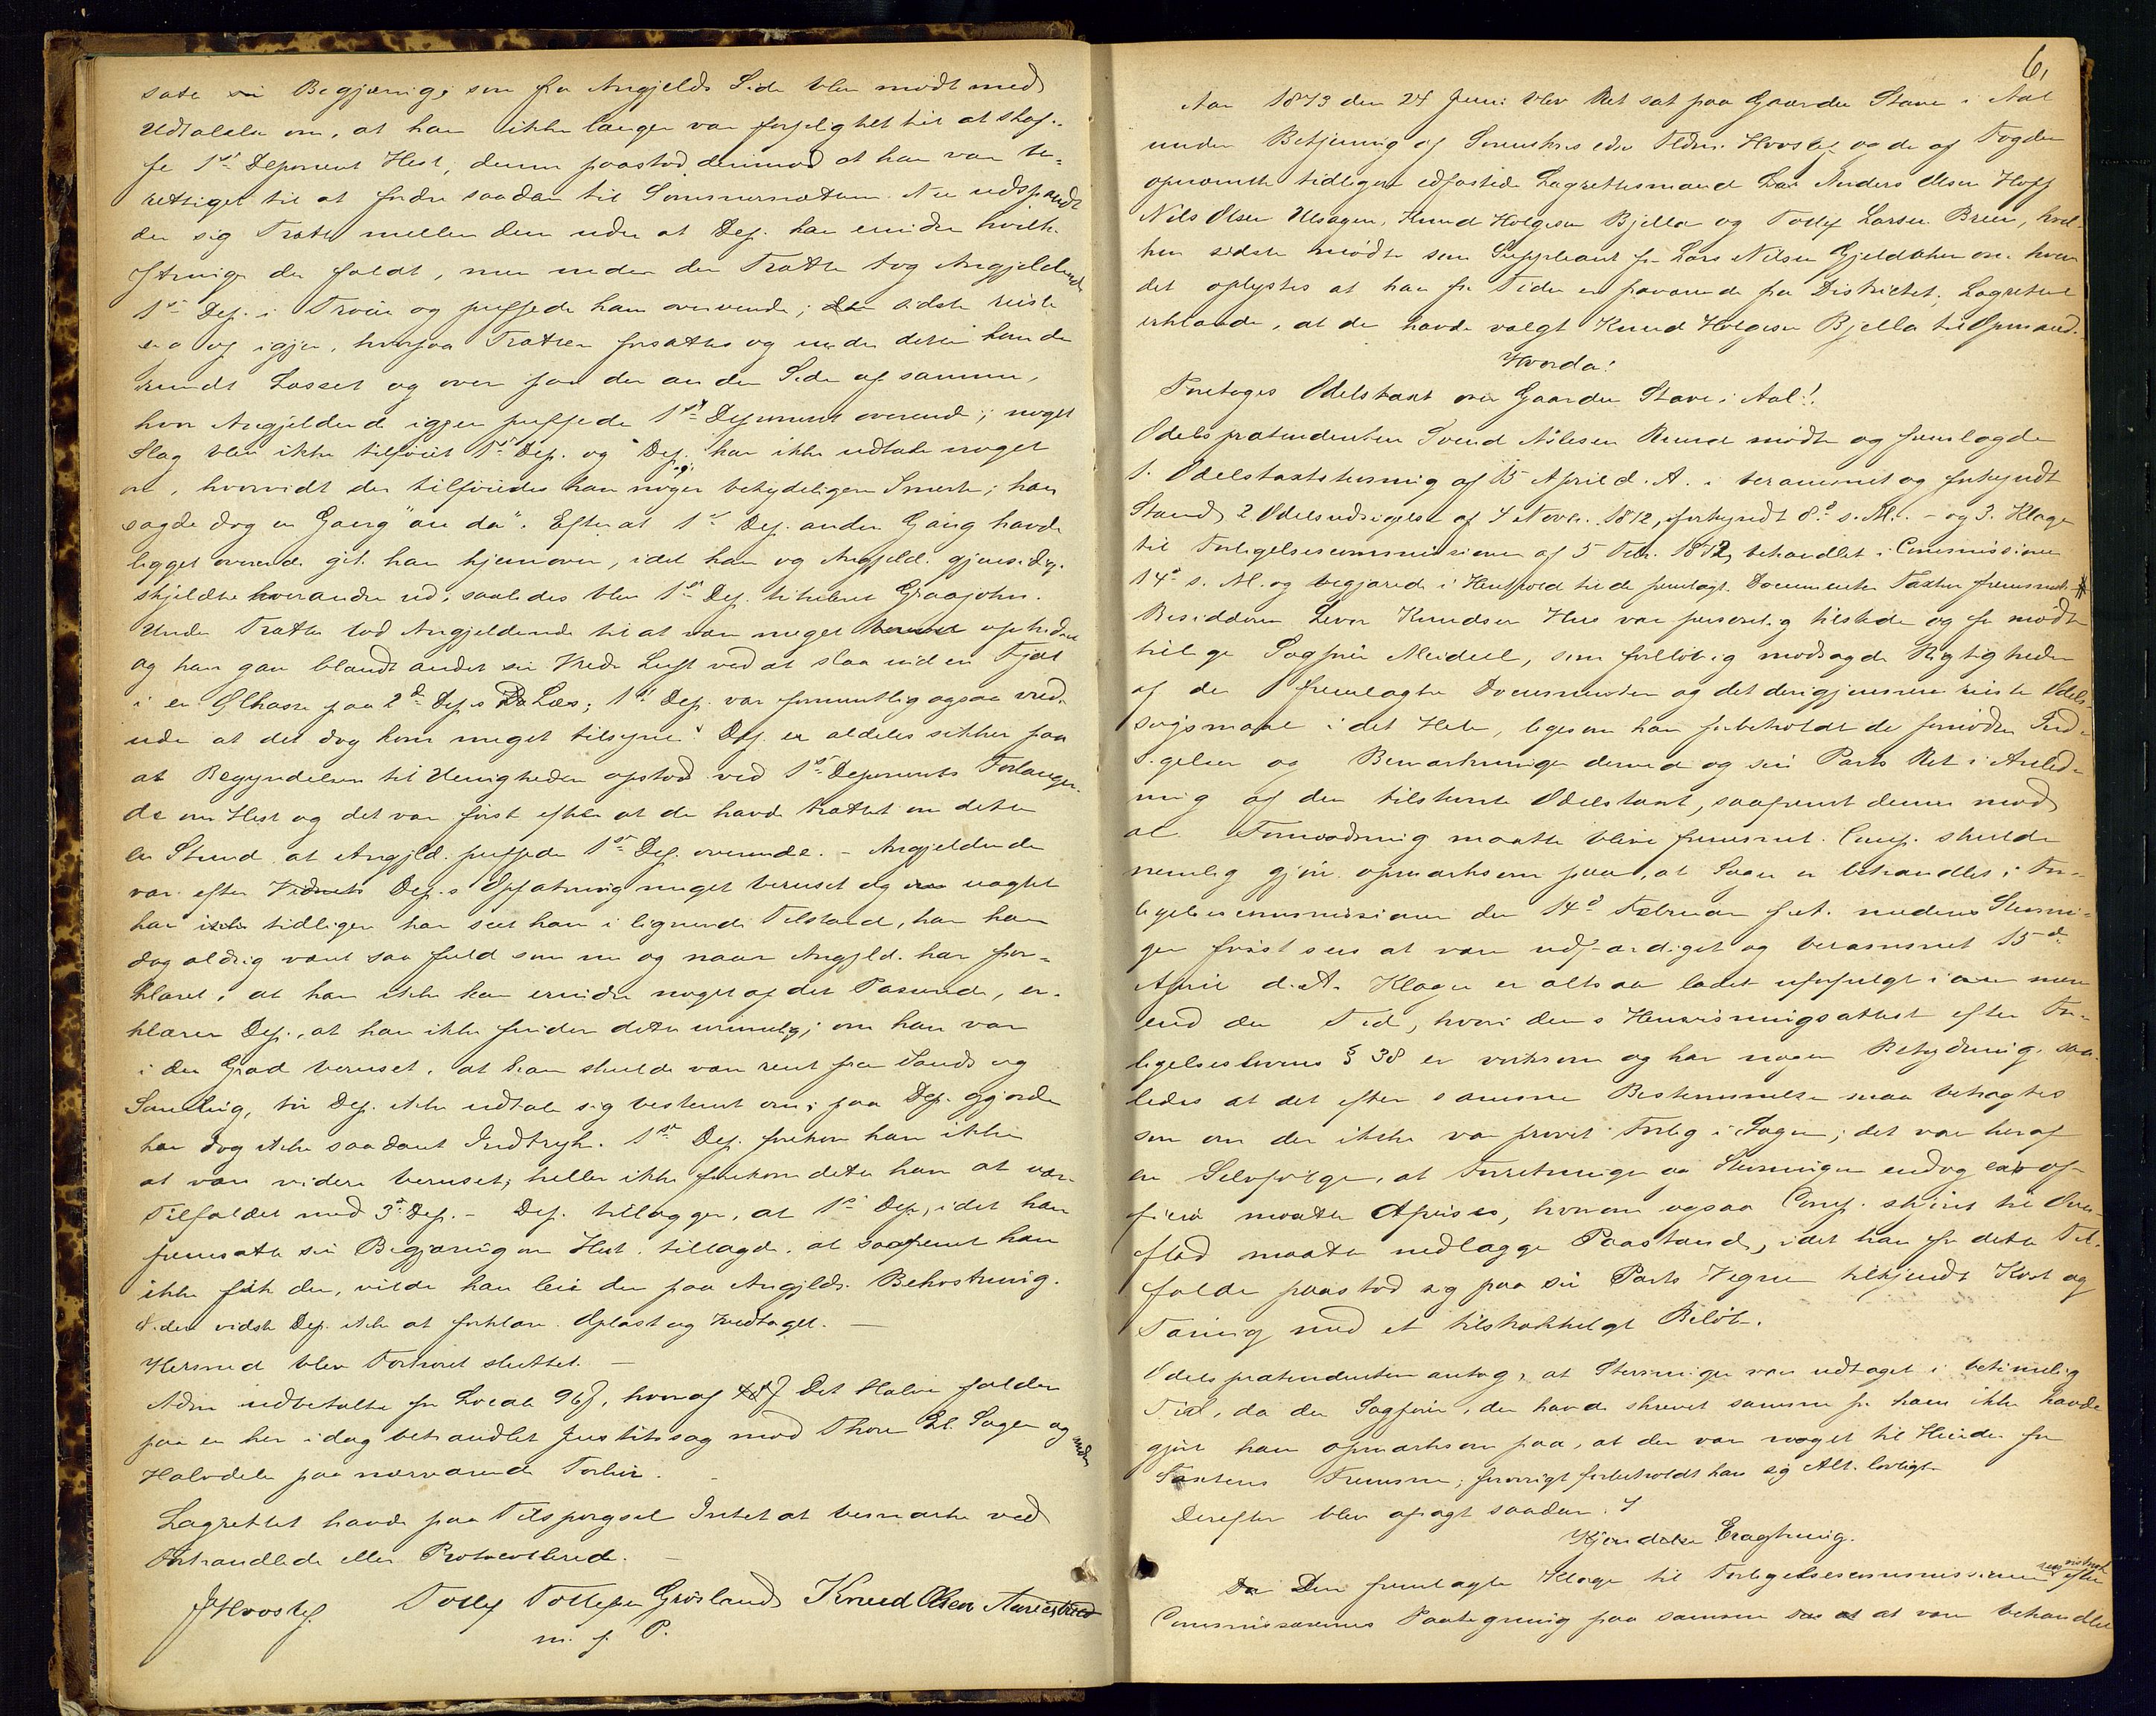 satte sin Begjæring, som fra Angjelds Side blev mødt med
Udtalelse om, at han ikke længer var forpligtet til at skaf-
fe 1ste Deponent Hest, denne paastod derimod at han var be-
rettiget til at fordre saadan til Sommernætten. Nu udspandt
der sig Trætte mellem dem uden at Dep. kan erindre hvilke
Ytringer der faldt, men under den Trætte tog Angjeldende
1ste Dep. i Trøien og puffede ham overende; den sidste reiste
sig igjen, hvorpaa Trætten forsattes og under denne kom de
rundt Lasset og over paa den anden Side af samme,
hvor Angjeldende igjen puffede 1ste Deponent overende; noget
Slag blev ikke tilføiet 1ste Dep. og Dep. kan ikke udtale noget
om, hvorvidt der tilføiedes ham nogen betydeligere Smerte; han
sagde dog en Gang "au da". Efter at 1ste Dep. anden Gang havde
ligget overende gik han hjemover, idet han og Angjeld. gjensidig
skjældte hverandre ud, saaledes blev 1ste Dep. tituleret Graajohn.
Under Trætten lod Angjeldende til at være meget beruset ophidset
og han gav blandt andet sin Vrede Luft ved at slaa ind en Fjæl
i en Ølkasse paa 2den Dep.s Læs; 1ste Dep. var formentlig ogsaa vred,
uden at det dog kom meget tilsyne. Dep. er aldeles sikker paa
at Begyndelsen til Uenigheden opstod ved 1ste Deponents Forlangen-
de om Hest og det var først efter at de havde trættet om dette
en Stund at Angjld. puffede 1ste Dep. overende. - Angjeldende
var efter Vidnets Dep.s Opfatning meget beruset og uagtet
han tidligere har seet ham i lignende Tilstand, har han
dog aldrig været saa fuld som nu og naar Angjld. har for-
klaret, at han ikke kan erindre noget af det Passerede, er-
klærer Dep., at han ikke finder dette urimelig; om han var
i den Grad beruset, at han skulde være rent fra Sands og
Samling, tør Dep. ikke udtale sig bestemt om; paa Dep. gjorde
han dog ikke saadant Indtryk. 1ste Dep. forekom ham ikke
at være videre beruset; heller ikke forekom dette ham at være
Tilfældet med 3die Dep. - Dep. tillægger, at 1ste Dep., idet han
fremsatte sin Begjæring om Hest, tillagde, at saafremt han
ikke fik den, vilde han leie den paa Angjlds. Bekostning.
Viden vidste Dep. ikke at forklare. Oplæst og vedtaget. -
Hermed blev Forhøret sluttet. -
Adm. udbetalte for Locale 96 ß, hvoraf det Halve falder
paa en her idag behandlet Justitssag mod Thore El. Sagen og
Halvdelen paa nærværende Forhør.
Lagrettet havde paa Tilspørgsel Intet at bemærke ved
Forhandlede eller Protocollerede. -
JHvoslef. Tollef Tollefsen Grøsland Knud Olsen
m. f. P.
6,
Aar 1873 den 24 Juni blev Ret sat paa Gaarden Stave i Aal
under Betjening af Sorenskriver Hvoslef og de af Fogden
opnævnte tidligere edfæstede Lagrettesmænd Anders Olsen Hoff
Nils Olsen Ulsagen, Knud Holgersen Bjella og Tollef Larsen Breie, hvil-
ken sidste mødte som Suppleant for Lars Nilsen Gjeldokken om hvem
det oplystes at han for Tiden er fraværende fra Districtet. Lagrettet
erklærede, at de havde valgt Knud Holgersen Bjella til Opmand.
Hvorda:
Foretoges Odelstaxt over Gaarden Stave i Aal!.
Odelsprætendenten Svend Nilsen Ruud mødte og fremlagde
1. Odelstaxtstevning af 15 April d. A. i berammet og forkyndt
Stand, 2 Odelsudsigelse af 4 Novbr. 1872, forkyndt 8de s. M. - og 3. Klage
til Forligelsescommissionen af 5 Febr. 1872, behandlet i Commissionen
14de s. M. og begjærede i Henhold til de fremlagte Documenter Taxten fremmet.
Besidderen Lever Knudsen Hus var personlig tilstede og for mødte
tillige Sagfører Meidell, som foreløbig modsagde Rigtigheden
af de fremlagte Documenter og det derigjennem reiste Odels-
søgsmaal i det Hele, ligesom han forbeholdt de fornødne Ind-
sigelser og Bemærkninger derved og sin Parts Ret i Anled-
ning af den tilstevnte Odelstaxt, saafremt denne mod
al Formodning maatte blive fremmet. Comp. skulde
nemlig gjøre opmærksom paa, at Sagen er behandlet i For-
ligelsescommissionen den 14de Februar f. A. medens Stevnin-
gen først sees at være udfærdiget og berammet 15de
April d. A. Klagen er altsaa ladet uforfulgt i mere
end den Tid, hvori dens Henvisningsattest efter For-
ligelseslovens § 38 er virksom og har nogen Betydning, saa-
ledes at det efter samme Bestemmelse maa betragtes
som om der ikke var prøvet Forlig i Sagen; det var heraf
en Selvfølge, at Forretningen og Stevningen endog ex of-
ficio maatte Afvises, hvorom ogsaa Comp. skjønt til Over-
flod maatte nedlægge Paastand, idet han for dette Til-
fælde paastod sig paa sin Parts Vegne tilkjendt Kost og
Tæring med et tilstrækkeligt Beløb.
Odelsprætendenten antog, at Stevningen var udtaget i betimelig
Tid, da den Sagfører, der havde skrevet samme for ham ikke havde
gjort ham opmærksom paa, at der var noget til Hinder for
Taxtens Fremme; forøvrigt forbeholdt han sig Alt lovligt.
Derefter blev afsagt saadan
Kjendelse Eragtning.
Da Den fremlagte Klage til Forligelsescommissionen sees vistnok efter
Commissærernes Paategning paa samme at være behandlet